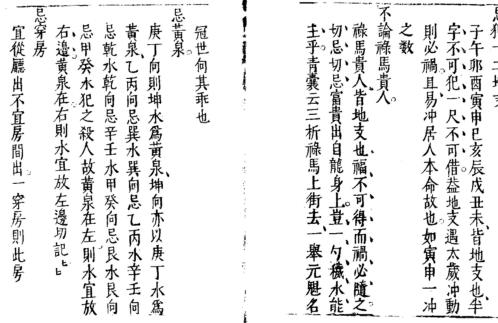 十二地支
子午卯酉寅申巳亥辰戌丑未皆地支也半
字不可犯一尺不可借益地支遇太歲冲動
則必禍且易冲居人本命故也如寅申一冲
之
不論祿馬貴人
祿馬貴人皆地支也福不可得而禍必隨之
切忌切忌富貴出自龍身上豈一勺穢水能
主乎青囊云三折祿馬上街去一舉元魁名
冠世何其乖也
忌黃泉
庚丁向則坤水爲黃泉坤向亦以庚丁水爲
黃泉乙丙向忌巽水巽向忌乙丙水辛壬向
忌乾水乾向忌辛壬水甲癸向忌艮水艮向
忌甲癸水犯之殺人故黃泉在左則水宜放
右邊黃泉在右則水宜放左邊切記〻〻
忌穿房
宜從廳出不宜房間出一穿房則此房